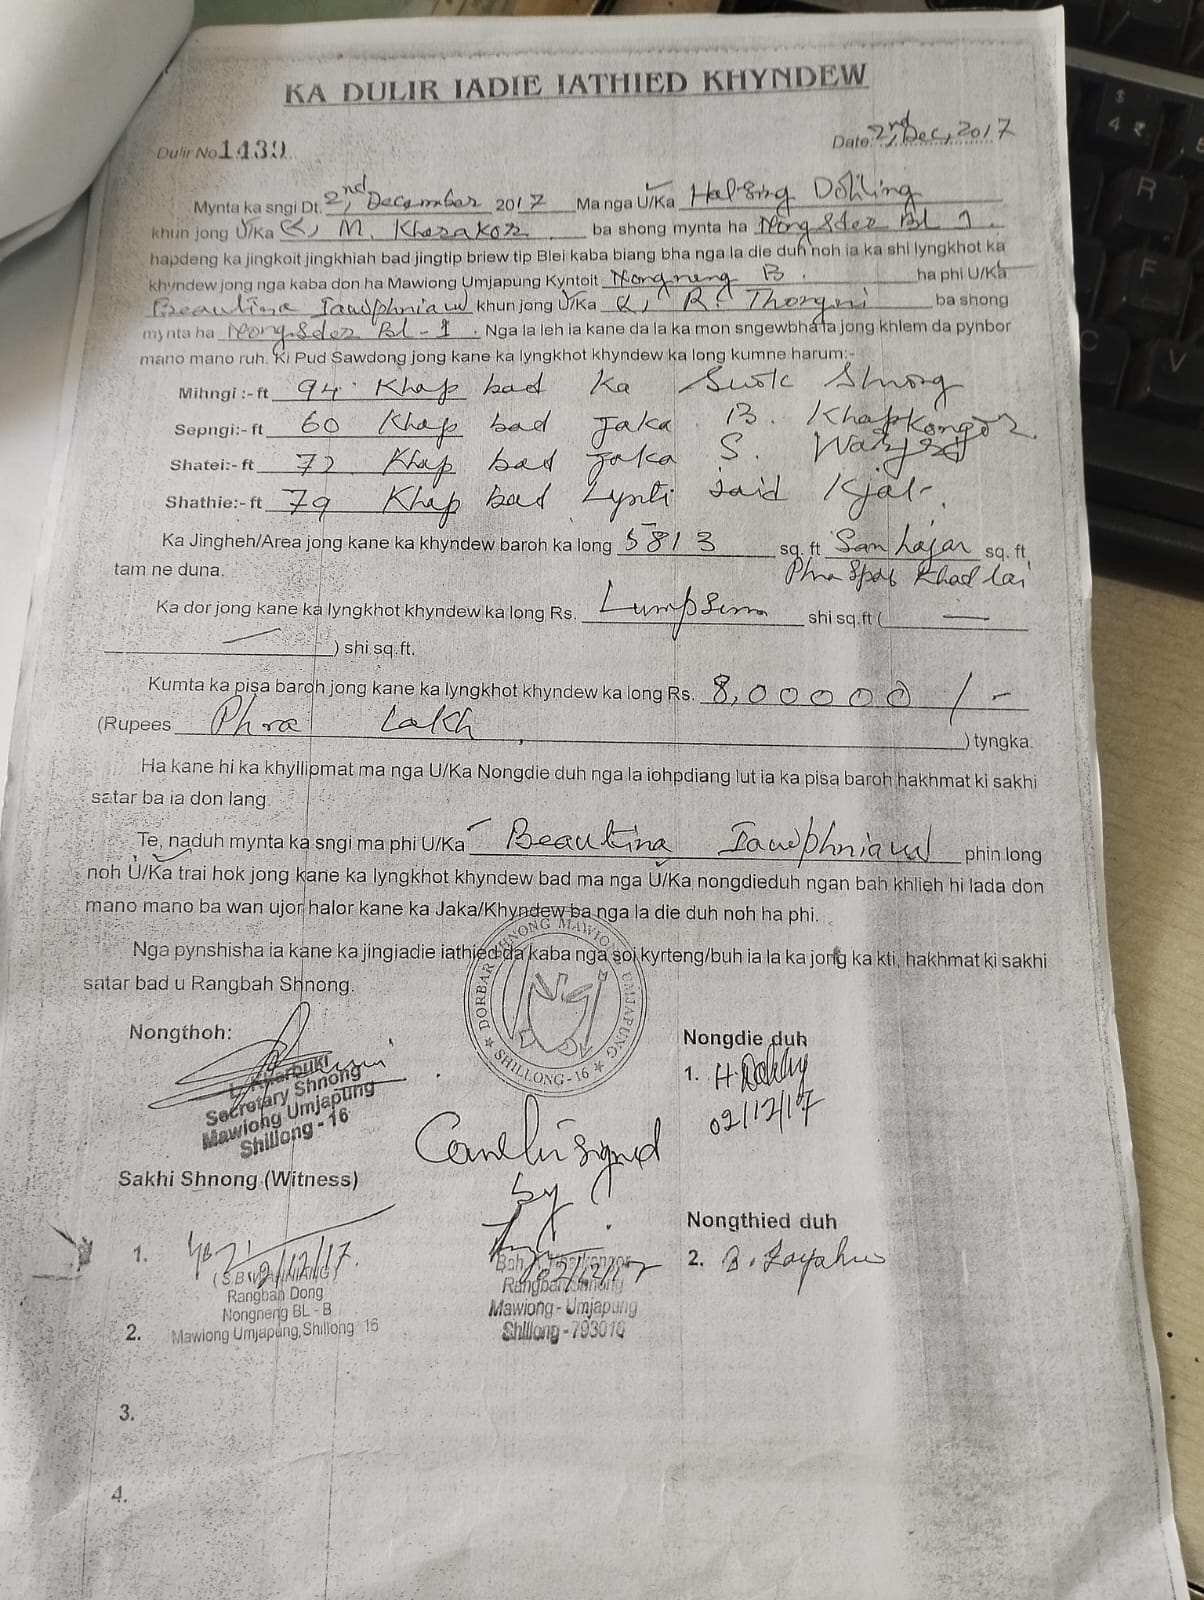 KA DULIR IADIE IATHIED KHYNDEW
Dulir No 1439
Date 2nd, Dec, 2017
Mynta ka sngi Dt. 2nd, December 2017 Ma nga U/Ka Halsing
khun jong U/Ka K, M. ba shong mynta ha Nongsder Bl 1.
hapdeng ka jingkoit jingkhiah bad jingtip briew tip Blei kaba biang bha nga la die duh noh ia ka shi lyngkhot ka
khyndew jong nga kaba don ha Mawiong Umjapung Kyntoit Nongneng B. ha phi U/Ka
Beautina Iawphniaw khun jong U/Ka K, R. Thongni ba shong
mynta ha Nongsder Bl-1. Nga la leh ia kane da la ka mon sngewbha la jong khlem da pynbor
mano mano ruh. Ki Pud Sawdong jong kane ka lyngkhot khyndew ka long kumne harum:-
Mihngi :- ft 94 Khap bad ka Surok Shnong
Sepngi:- ft 60 Khap bad jaka B.
Shatei:- ft 72 Khap bad jaka S.
Shathie:- ft 79 Khap bad Lynti iaid Kjat.
Ka Jingheh/Area jong kane ka khyndew baroh ka long 5813 sq. ft San hajar sq. ft
Phra Spah Khad lai
tam ne duna.
Ka dor jong kane ka lyngkhot khyndew ka long Rs. Lumpsum shi sq.ft ( —
— ) shi sq.ft.
Kumta ka pisa baroh jong kane ka lyngkhot khyndew ka long Rs. 8,00000/-
(Rupees Phra Lakh ) tyngka.
Ha kane hi ka khyllipmat ma nga U/Ka Nongdie duh nga la iohpdiang lut ia ka pisa baroh hakhmat ki sakhi
satar ba ia don lang.
Te, naduh mynta ka sngi ma phi U/Ka Beautina Iawphniaw phin long
noh U/Ka trai hok jong kane ka lyngkhot khyndew bad ma nga U/Ka nongdieduh ngan bah khlieh hi lada don
mano mano ba wan ujor halor kane ka Jaka/Khyndew ba nga la die duh noh ha phi.
Nga pynshisha ia kane ka jingiadie iathied da kaba nga soi kyrteng/buh ia la ka jong ka kti, hakhmat ki sakhi
satar bad u Rangbah Shnong.
★ DORBAR SHNONG MAWIONG UMJAPUNG ★ SHILLONG-16
Nongthoh:
Secretary Shnong
Mawiong Umjapung
Shillong - 16
Nongdie duh
1.
02/12/17
signed
by
Sakhi Shnong (Witness)
1. 2/12/17.
Rangbah Dong
Nongneng BL - B
2. Mawiong Umjapung, Shillong 16
Rangbah Shnong
Mawiong - Umjapung
Shillong - 793016
Nongthied duh
2. B.
3.
4.
$
4 ₹
R
F
C
V